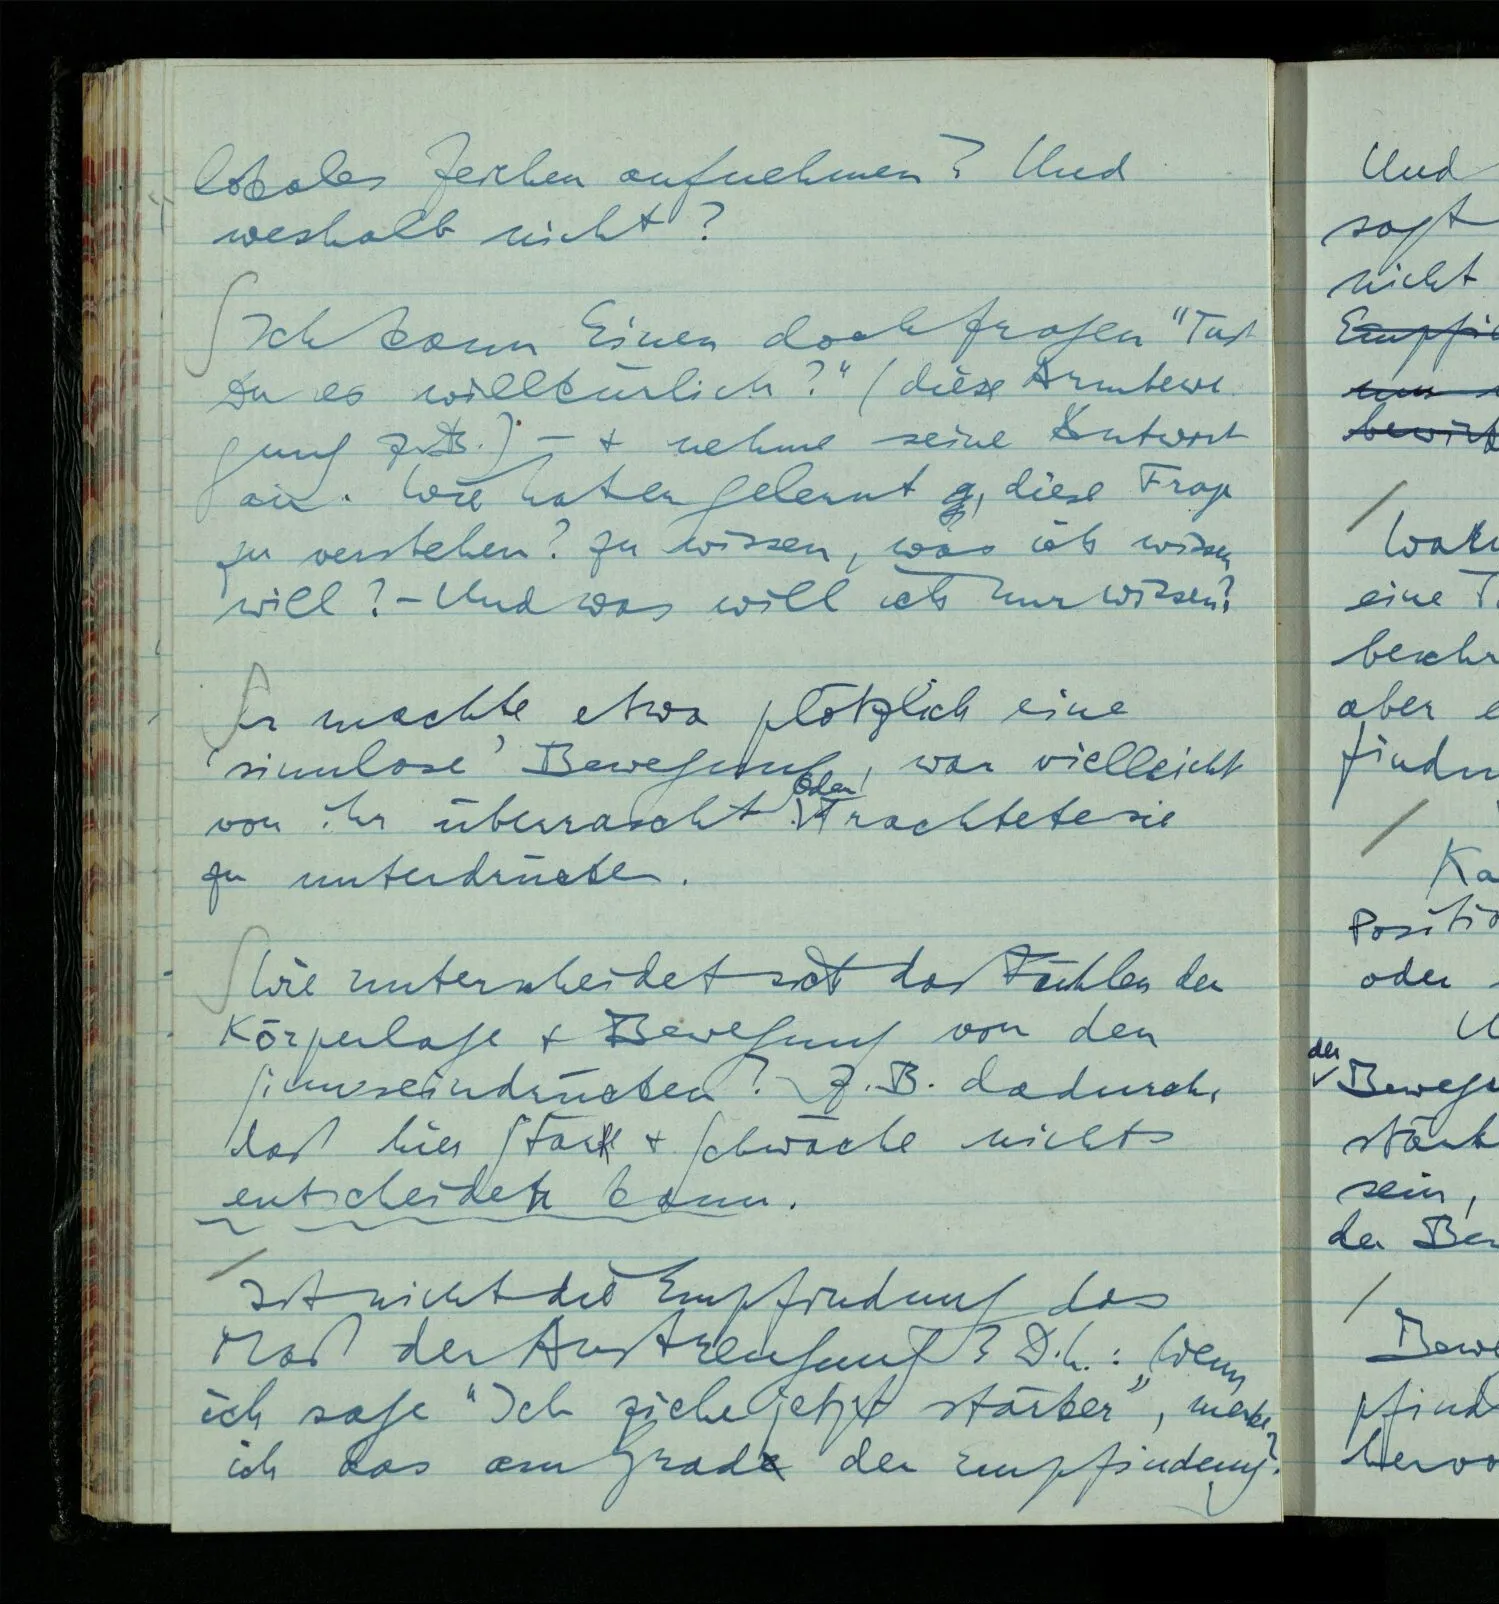 lokales Zeichen aufnehmen? Und
weshalb nicht?
Ich kann Einen doch fragen "Tust
Du es willkürlich?" (diese Armbewe-
gung z.B.) – + nehme seine Antwort
an. Wie haben gelernt, diese Frage
zu verstehen? zu wissen, was ich wissen
will? – Und was will ich nur wissen?
Er machte etwa plötzlich eine
'sinnlose' Bewegung, war vielleicht
von ihr überrascht. oder Trachtete sie
zu unterdrücken.
Wie unterscheidet sich das Fühlen der
Körperlage + Bewegung von den
Sinneseindrücken? Z.B. dadurch,
daß hier Stärke + Schwäche nichts
entscheiden kann.
Ist nicht die Empfindung das
Maß der Anstrengung? D.h.: Wenn
ich sage "Ich ziehe jetzt stärker", merke
ich das am Grade der Empfindung?
Und
sagt
nicht
eine
aber
oder
der
sein,
der